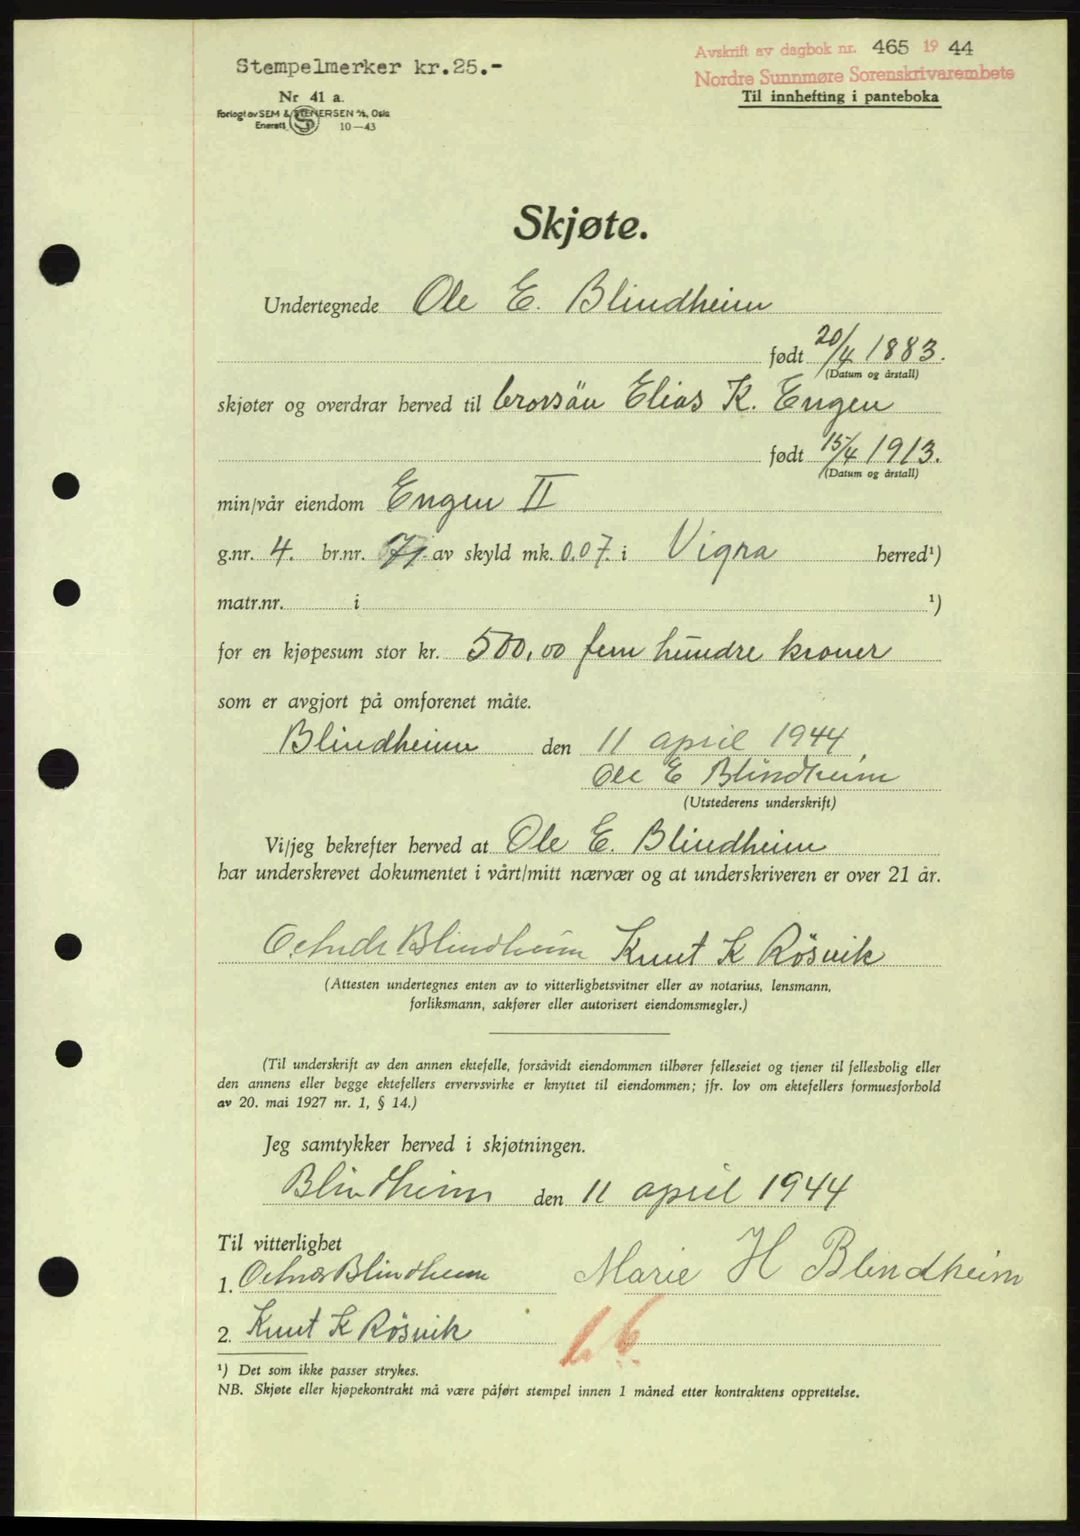 Avskrift av dagbok nr. 465 1944
Stempelmerker kr.25.-
Nordre Sunnmøre Sorenskrivarembete
Nr 41 a.
Til innhefting i panteboka
Forlagt av SEM & STENERSEN A/S, Oslo
Enerett 10-43
Skjøte.
Undertegnede Ole E. Blindheim
født 20/4 1883.
(Datum og årstall)
skjøter og overdrar herved til brorsøn Elias K. Engen
født 15/4 1913.
(Datum og årstall)
min/vår eiendom Engen II
g.nr. 4. br.nr. 71. av skyld mk. 0.07. i Vigra herred¹)
matr.nr. i ¹)
for en kjøpesum stor kr. 500,00 fem hundre kroner
som er avgjort på omforenet måte.
Blindheim den 11 april 1944
Ole E Blindheim
(Utstederens underskrift)
Vi/jeg bekrefter herved at Ole E. Blindheim
har underskrevet dokumentet i vårt/mitt nærvær og at underskriveren er over 21 år.
Blindheim Knut K Røsvik
(Attesten undertegnes enten av to vitterlighetsvitner eller av notarius, lensmann,
forliksmann, sakfører eller autorisert eiendomsmegler.)
(Til underskrift av den annen ektefelle, forsåvidt eiendommen tilhører felleseiet og tjener til fellesbolig eller
den annens eller begge ektefellers ervervsvirke er knyttet til eiendommen; jfr. lov om ektefellers formuesforhold
av 20. mai 1927 nr. 1, § 14.)
Jeg samtykker herved i skjøtningen.
Blindheim den 11 april 1944
Til vitterlighet
1. Blindheim Marie H Blindheim
2. Knut K Røsvik
¹) Det som ikke passer strykes.
NB. Skjøte eller kjøpekontrakt må være påført stempel innen 1 måned etter kontraktens opprettelse.